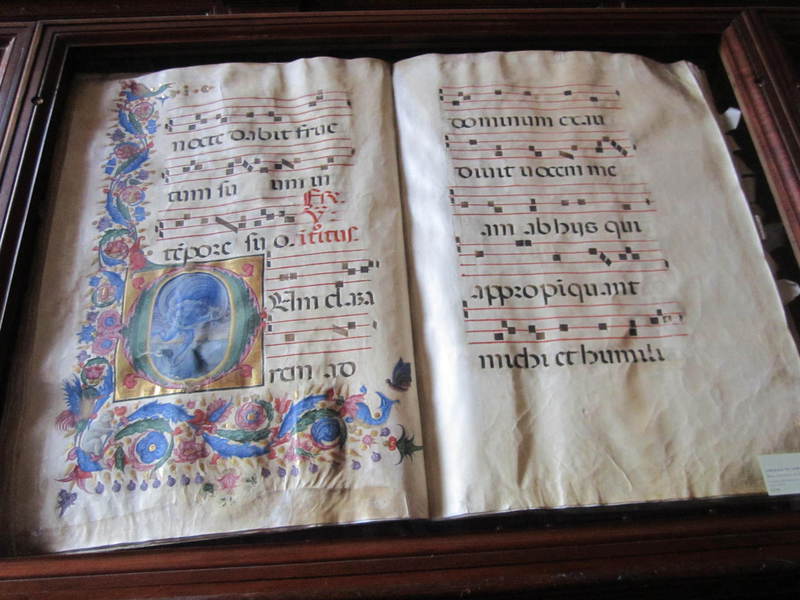 nocte dabit fruc
tum su um in
Fr.
V.
tēpore suo. itroitus.
DUm clama
rem ad
dominum exau
diuit uocem me
am ab hys qui
appropiquant
michi et humili